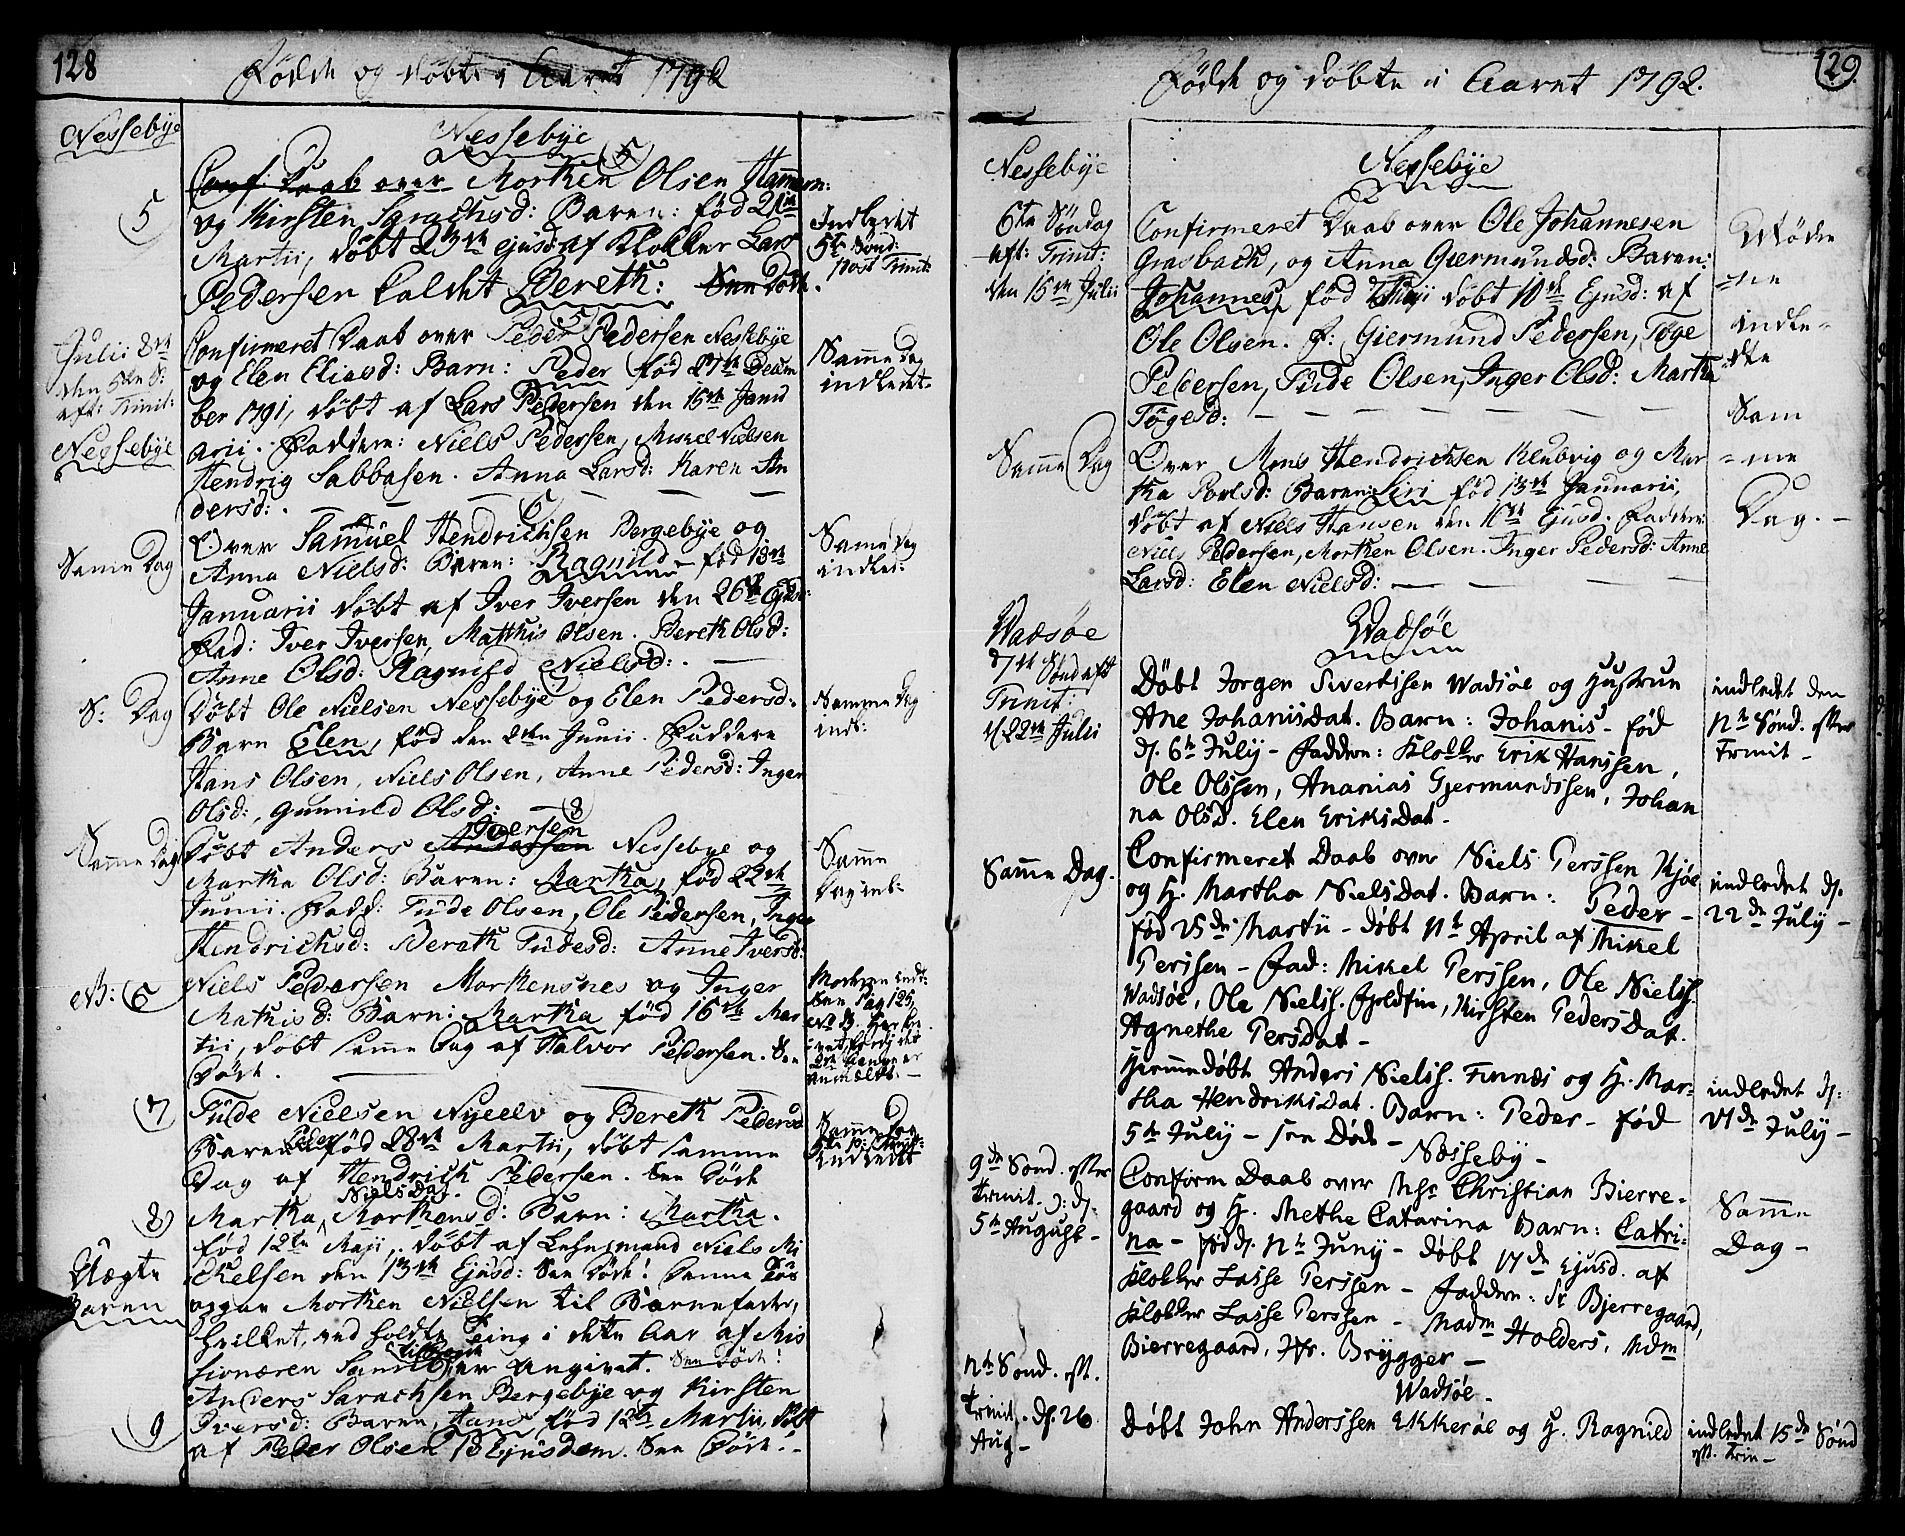 128
Fødde og døbte i Aaret 1792
Nessebÿe
Nessebÿe
(5)
Conf: Daab over Morten Olsen Hamern:
(5)
og Kirsten Sarachsd: Baren: fød 21de
Martii, døbt 23de ejusd: af Klokker Lars
Pedersen kaldet Bereth: See Døde.
Indledet
5te Sønd:
post Trinit:
Julii 8de
den 5te S:
aft: Trinit:
Nessebÿe
Confirmeret Daab over Peder Pedersen Nessebye
og Elen Eliasd: Barn: Peder fød 27de Decem
ber 1791, døbt af Lars Pedersen den 15de Janu
arii. Faddere: Niels Pedersen, Mikkel Nielsen
Hendrig Sabbasen. Anna Larsd: Karen An
dersd:
Samme Dag
indledt.
Samme Dag
Over Samuel Hendrichsen Bergebye og
Anna Nielsd: Baren: Ragnild fød 18de
Januarii døbt af Iver Iversen den 26de Ejusd:
Fad: Iver Iversen, Matthis Olsen. Bereth Olsd:
Anne Olsd: Ragnild Nielsd:
Same Dag
indled:
S: Dag
Døbt Ole Nielsen Nessebye og Elen Pedersd:
Barn Elen, fød den 2den Junii. Faddere
Hans Olsen, Niels Olsen, Anne Pedersd: Inger
Olsd:, Gunnild Olsd:
Samme Dag
ind:
Samme Dag
(8)
Iversen
Døbt Anders Andersen Nessebye og
Martha Olsd: Baren: Martha, fød 22de
Junii. Fadd: Tude Olsen, Ole Pedersen, Inger
Hendrichsd: Berath Tudesd: Anne Iversd:
Samme
Dag inl:
NB: (6)
Niels Pedersen Mortensnes og Inger
Mathisd: Barn: Martha fød 16de Mar
tii, døbt samme Dag af Halvor Pedersen. See
Døde.
Moderen indl:
See Pag 125,
(7)
Tude Nielsen Nyeelv og Bereth Pedersd
Baren Peder fød 28de Martii, døbt samme
Dag af Hendrich Pedersen. See Døde
Samme Dag
indledet
(8)
Nielsdat.
Martha Mortensd: Barn: Martha.
fød 12te Maji, døbt af Lehnsmand Niels Mi
Uægte
Baren
kelsen den 13de Ejusd: See Døde! Denne
opgav Morthen Nielsen til Barnefader,
hvilket, ved holdte Ting i dette Aar af Mis
sionæren angivet. See Døde!
(9)
Anders Sarachsen Bergebye og Kirsten
Iversd: Baren, Hans fød 12te Martii, døbt
af Peder Olsen 13 Ejusdem. See Døde!
129.
Fødde og døbte i Aaret 1792.
Nessebÿe
Nessebÿe
6te Søndag
aft: Trinit:
den 15de Julii
Confirmeret Daab over Ole Johannesen
Grasbach, og Anna Giermundsd: Baren:
Johannes, fød døbt 10de Ejusd: af
Ole Olsen. F: Giermund Pedersen, Tøge
Pedersen, Tude Olsen, Inger Olsd: Martha
Tøgesd:
Mødre
=ne
indle=
dte
Samme Dag
Over Mons Hendrichsen Klubvig og Mar
tha Povlsd: Baren: Siri fød 13de Januarii,
døbt af Niels Hansen den 16de Ejusd. Faddere:
Niels Pedersen, Morthen Olsen. Inger Pedersd: Anne
Larsd: Elen Nielsd:
Sam
=me
Dag.
Wadsøe
Wadsøe
7de Sønd aft
Trinit:
d. 22de Julii
Døbt Jorgen Sivertssen Wadsøe og Hustrue
Ane Johanisdat. Barn: Johanis - fød
d. 6te July - Faddere: Klokker Erik Hanssen,
Ole Olssen, Ananias Gjermundssen, Johan
na Olsd. Elen Eriksdat.
indledet den
11te Sønd. efter
Trinit -
Samme Dag.
Confirmeret Daab over Niels Perssen Kjøe
og H. Martha Nielsdat. Barn: Peder -
fød 25de Martii - døbt 11te April af Mikel
Perssen - Fad: Mikel Perssen, Ole Nielss.
Wadsøe, Ole Nielss. Fjeldfin, Kirsten Pedersdat.
Agnethe Persdat -
indledet d.
22de July -
Hjemmedøbt Anders Nielss. Finnæs og H. Mar=
tha Hendriksdat. Barn: Peder - fød
5te July - see Døde -
indledet d:
21de July -
Næsseby -
9de Sønd. efter
Trinit. ɔ: d.
5te August -
Conform Daab over Msr Christian Bierre-
gaard og H. Methe Catarina Barn: Catri-
na - fød d. 11te Juny - døbt 17de Ejusd. af
Klokker Lasse Perssen - Faddere: Sr Bjerregaard,
Klokker Lasse Perssen - Madm Holders, Mdm
Bierregaard, Jfr. Brygger -
Samme
Dag -
Wadsøe -
11te Sønd. eft.
Trinit. d. 26
Aug -
Døbt John Anderssen Ekkerøe og H. Ragnild
indledet 15de Sønd
eft. Trin -